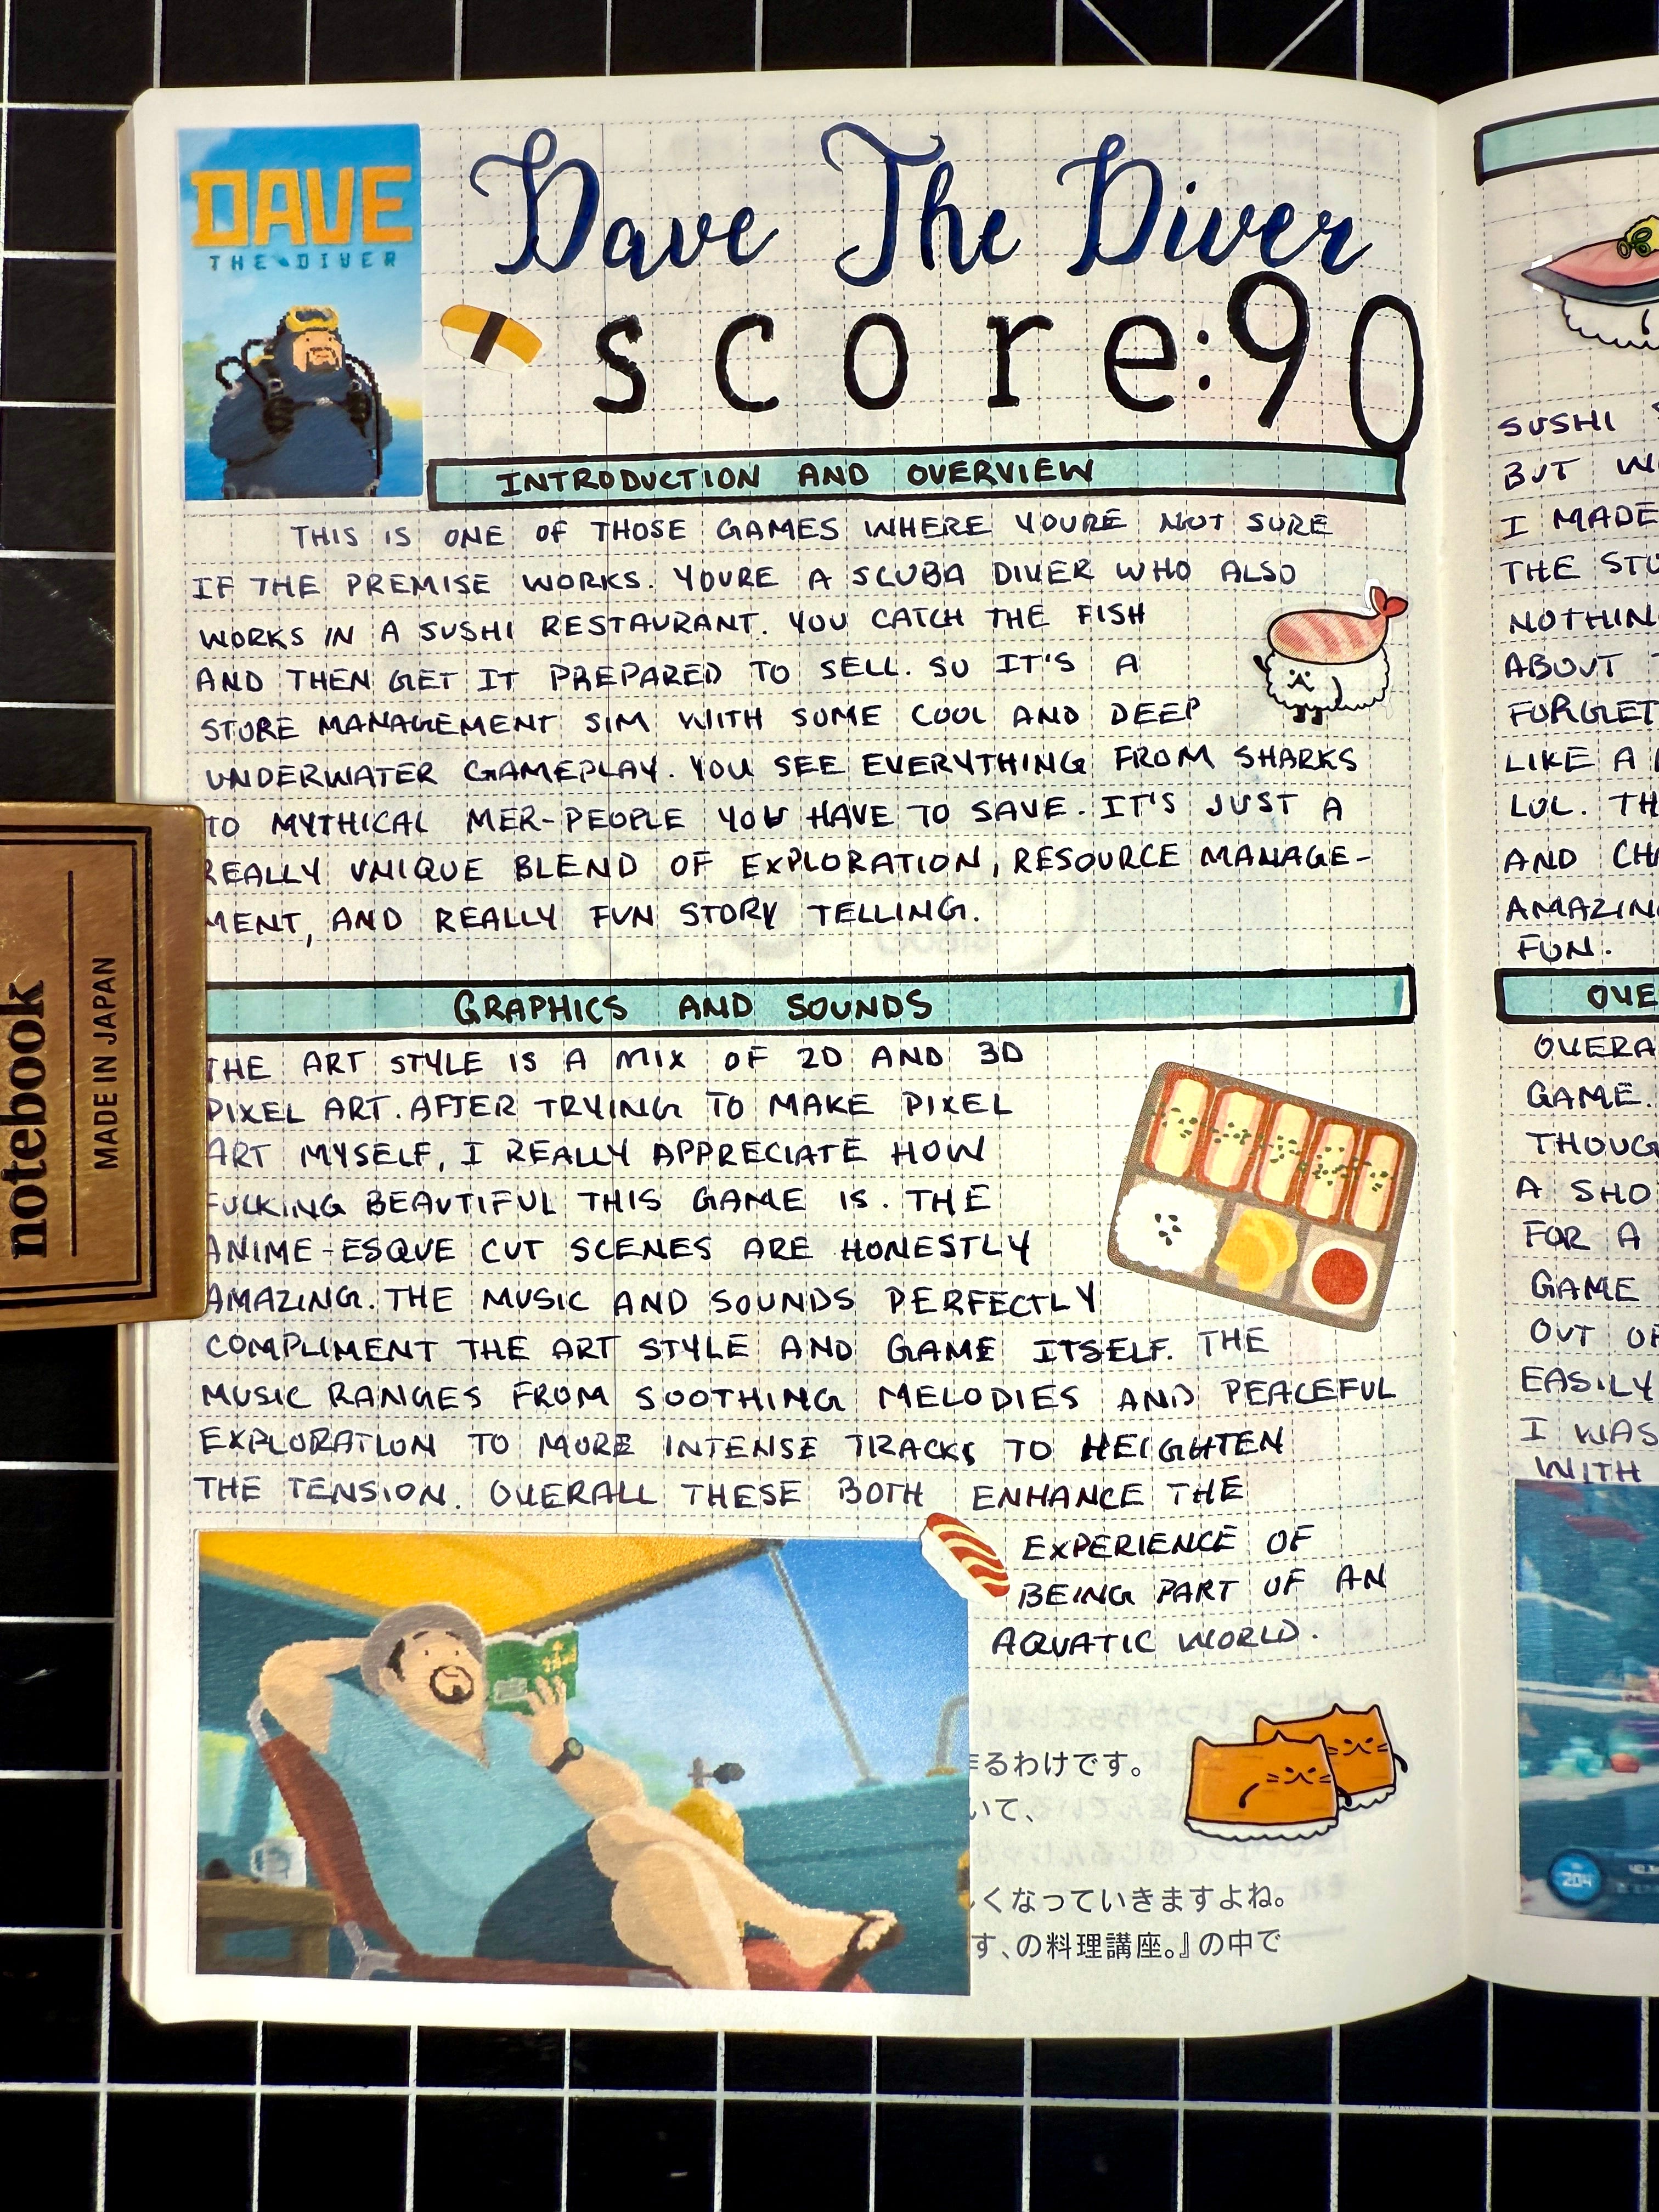 DAVE
THE DIVER
Dave The Diver
score:90
INTRODUCTION AND OVERVIEW
THIS IS ONE OF THOSE GAMES WHERE YOURE NOT SURE
IF THE PREMISE WORKS. YOURE A SCUBA DIVER WHO ALSO
WORKS IN A SUSHI RESTAURANT. YOU CATCH THE FISH
AND THEN GET IT PREPARED TO SELL. SO IT'S A
STORE MANAGEMENT SIM WITH SOME COOL AND DEEP
UNDERWATER GAMEPLAY. YOU SEE EVERYTHING FROM SHARKS
TO MYTHICAL MER-PEOPLE YOU HAVE TO SAVE. IT'S JUST A
REALLY UNIQUE BLEND OF EXPLORATION, RESOURCE MANAGE-
MENT, AND REALLY FUN STORY TELLING.
GRAPHICS AND SOUNDS
THE ART STYLE IS A MIX OF 2D AND 3D
PIXEL ART. AFTER TRYING TO MAKE PIXEL
ART MYSELF, I REALLY APPRECIATE HOW
FUCKING BEAUTIFUL THIS GAME IS. THE
ANIME-ESQUE CUT SCENES ARE HONESTLY
AMAZING. THE MUSIC AND SOUNDS PERFECTLY
COMPLIMENT THE ART STYLE AND GAME ITSELF. THE
MUSIC RANGES FROM SOOTHING MELODIES AND PEACEFUL
EXPLORATION TO MORE INTENSE TRACKS TO HEIGHTEN
THE TENSION. OVERALL THESE BOTH ENHANCE THE
EXPERIENCE OF
BEING PART OF AN
AQUATIC WORLD.
るわけです。
いて、
くなっていきますよね。
す、の料理講座。』の中で
notebook
MADE IN JAPAN
SUSHI
BUT
I MADE
THE
NOTHIN
ABOUT
FORGET
LIKE A
LOL. TH
AND CH
AMAZIN
FUN.
OVE
OVERA
GAME.
THOUG
A SHO
FOR A
GAME
OUT OF
EASILY
I WAS
WITH
204